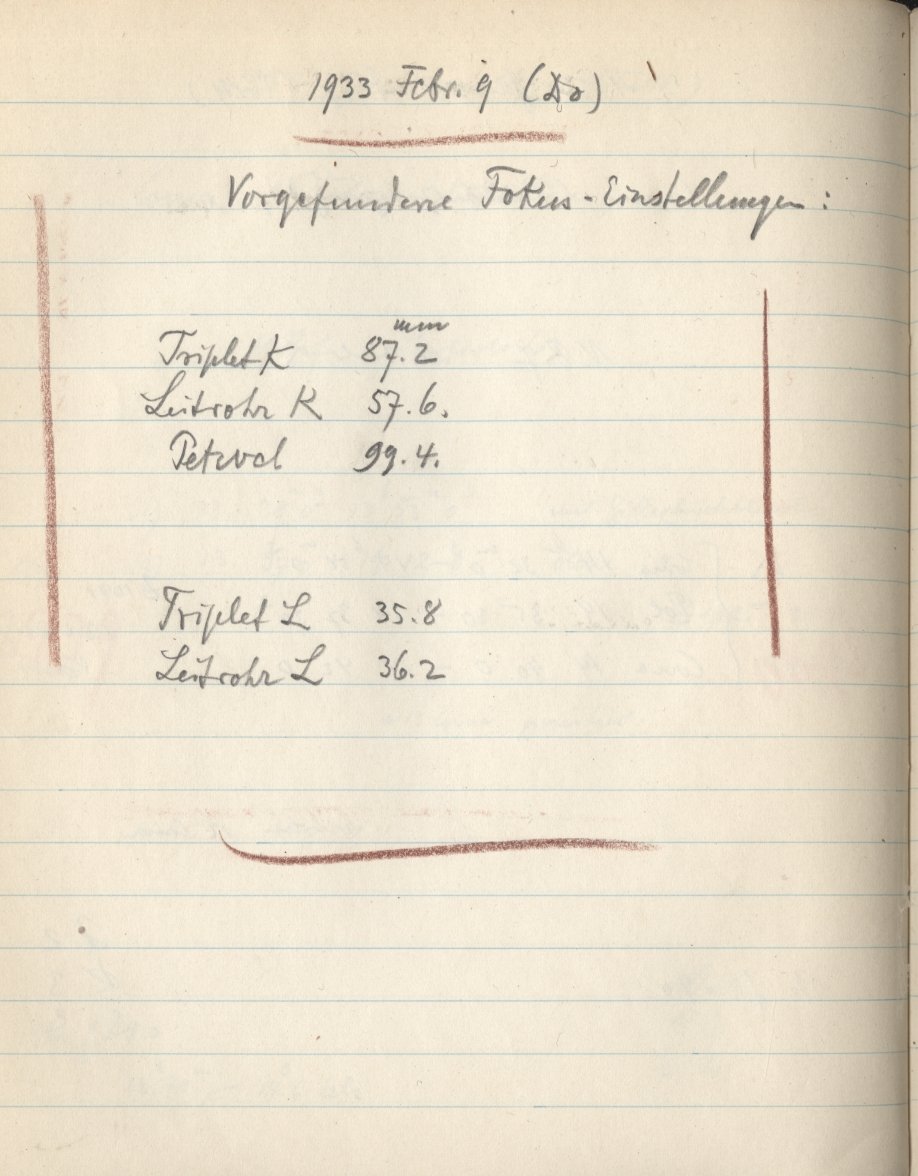 1933 Febr. 9 (Do)
Vorgefundene Fokus-Einstellungen:
mm
Triplet K 87.2
Leitrohr K 57.6.
Petzval 99.4.
Triplet L 35.8
Leitrohr L 36.2